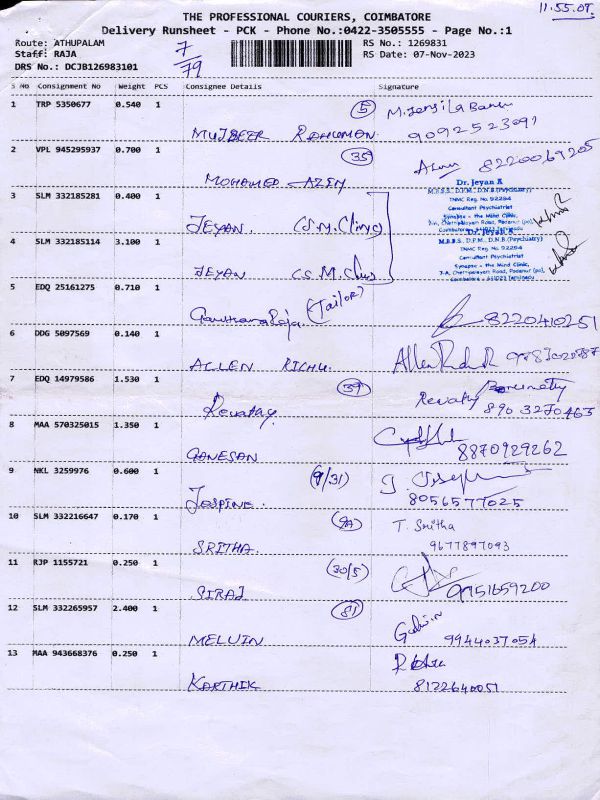 11.55.07.
THE PROFESSIONAL COURIERS, COIMBATORE
Delivery Runsheet - PCK - Phone No.:0422-3505555 - Page No.:1
Route: ATHUPALAM
RS No.: 1269831
Staff: RAJA
7/79
RS Date: 07-Nov-2023
DRS No.: DCJB126983101
S No Consignment No Weight PCS Consignee Details Signature
1 TRP 5350677 0.540 1
5
MUJBEER RAHUMAN
9092523091
2 VPL 945295937 0.700 1
35
8220069205
MOHOMED AZEM
3 SLM 332185281 0.400 1
JEYAN (S.M.Clinic)
Dr. Jeyan A
M.B.B.S., D.P.M., D.N.B.(Psychiatry)
TNMC Reg. No 92284
Consultant Psychiatrist
Synapse - the Mind Clinic,
7-A, Chettipalayam Road, Podanur (po),
Coimbatore - 641023 Tamilnadu
4 SLM 332185114 3.100 1
JEYAN (S.M.
Dr. Jeyan A
M.B.B.S., D.P.M., D.N.B.(Psychiatry)
TNMC Reg. No 92284
Consultant Psychiatrist
Synapse - the Mind Clinic,
7-A, Chettipalayam Road, Podanur (po),
Coimbatore - 641023 Tamilnadu
5 EDQ 25161275 0.710 1
(Tailor)
8220410251
6 DDG 5097569 0.140 1
ALLEN RICHU.
7 EDQ 14979586 1.530 1
39
Revathy
Revathy
8903270463
8 MAA 570325015 1.350 1
GANESAN
8870929262
9 NKL 3259976 0.600 1
(9/31)
JOSPINE.
8056577025
10 SLM 332216647 0.170 1
T. Sritha
SRITHA.
9677897093
11 RJP 1155721 0.250 1
(30/5)
SIRAJ
9751659200
12 SLM 332265957 2.400 1
81
MELVIN
9944037054
13 MAA 943668376 0.250 1
KARTHIK
8122640051